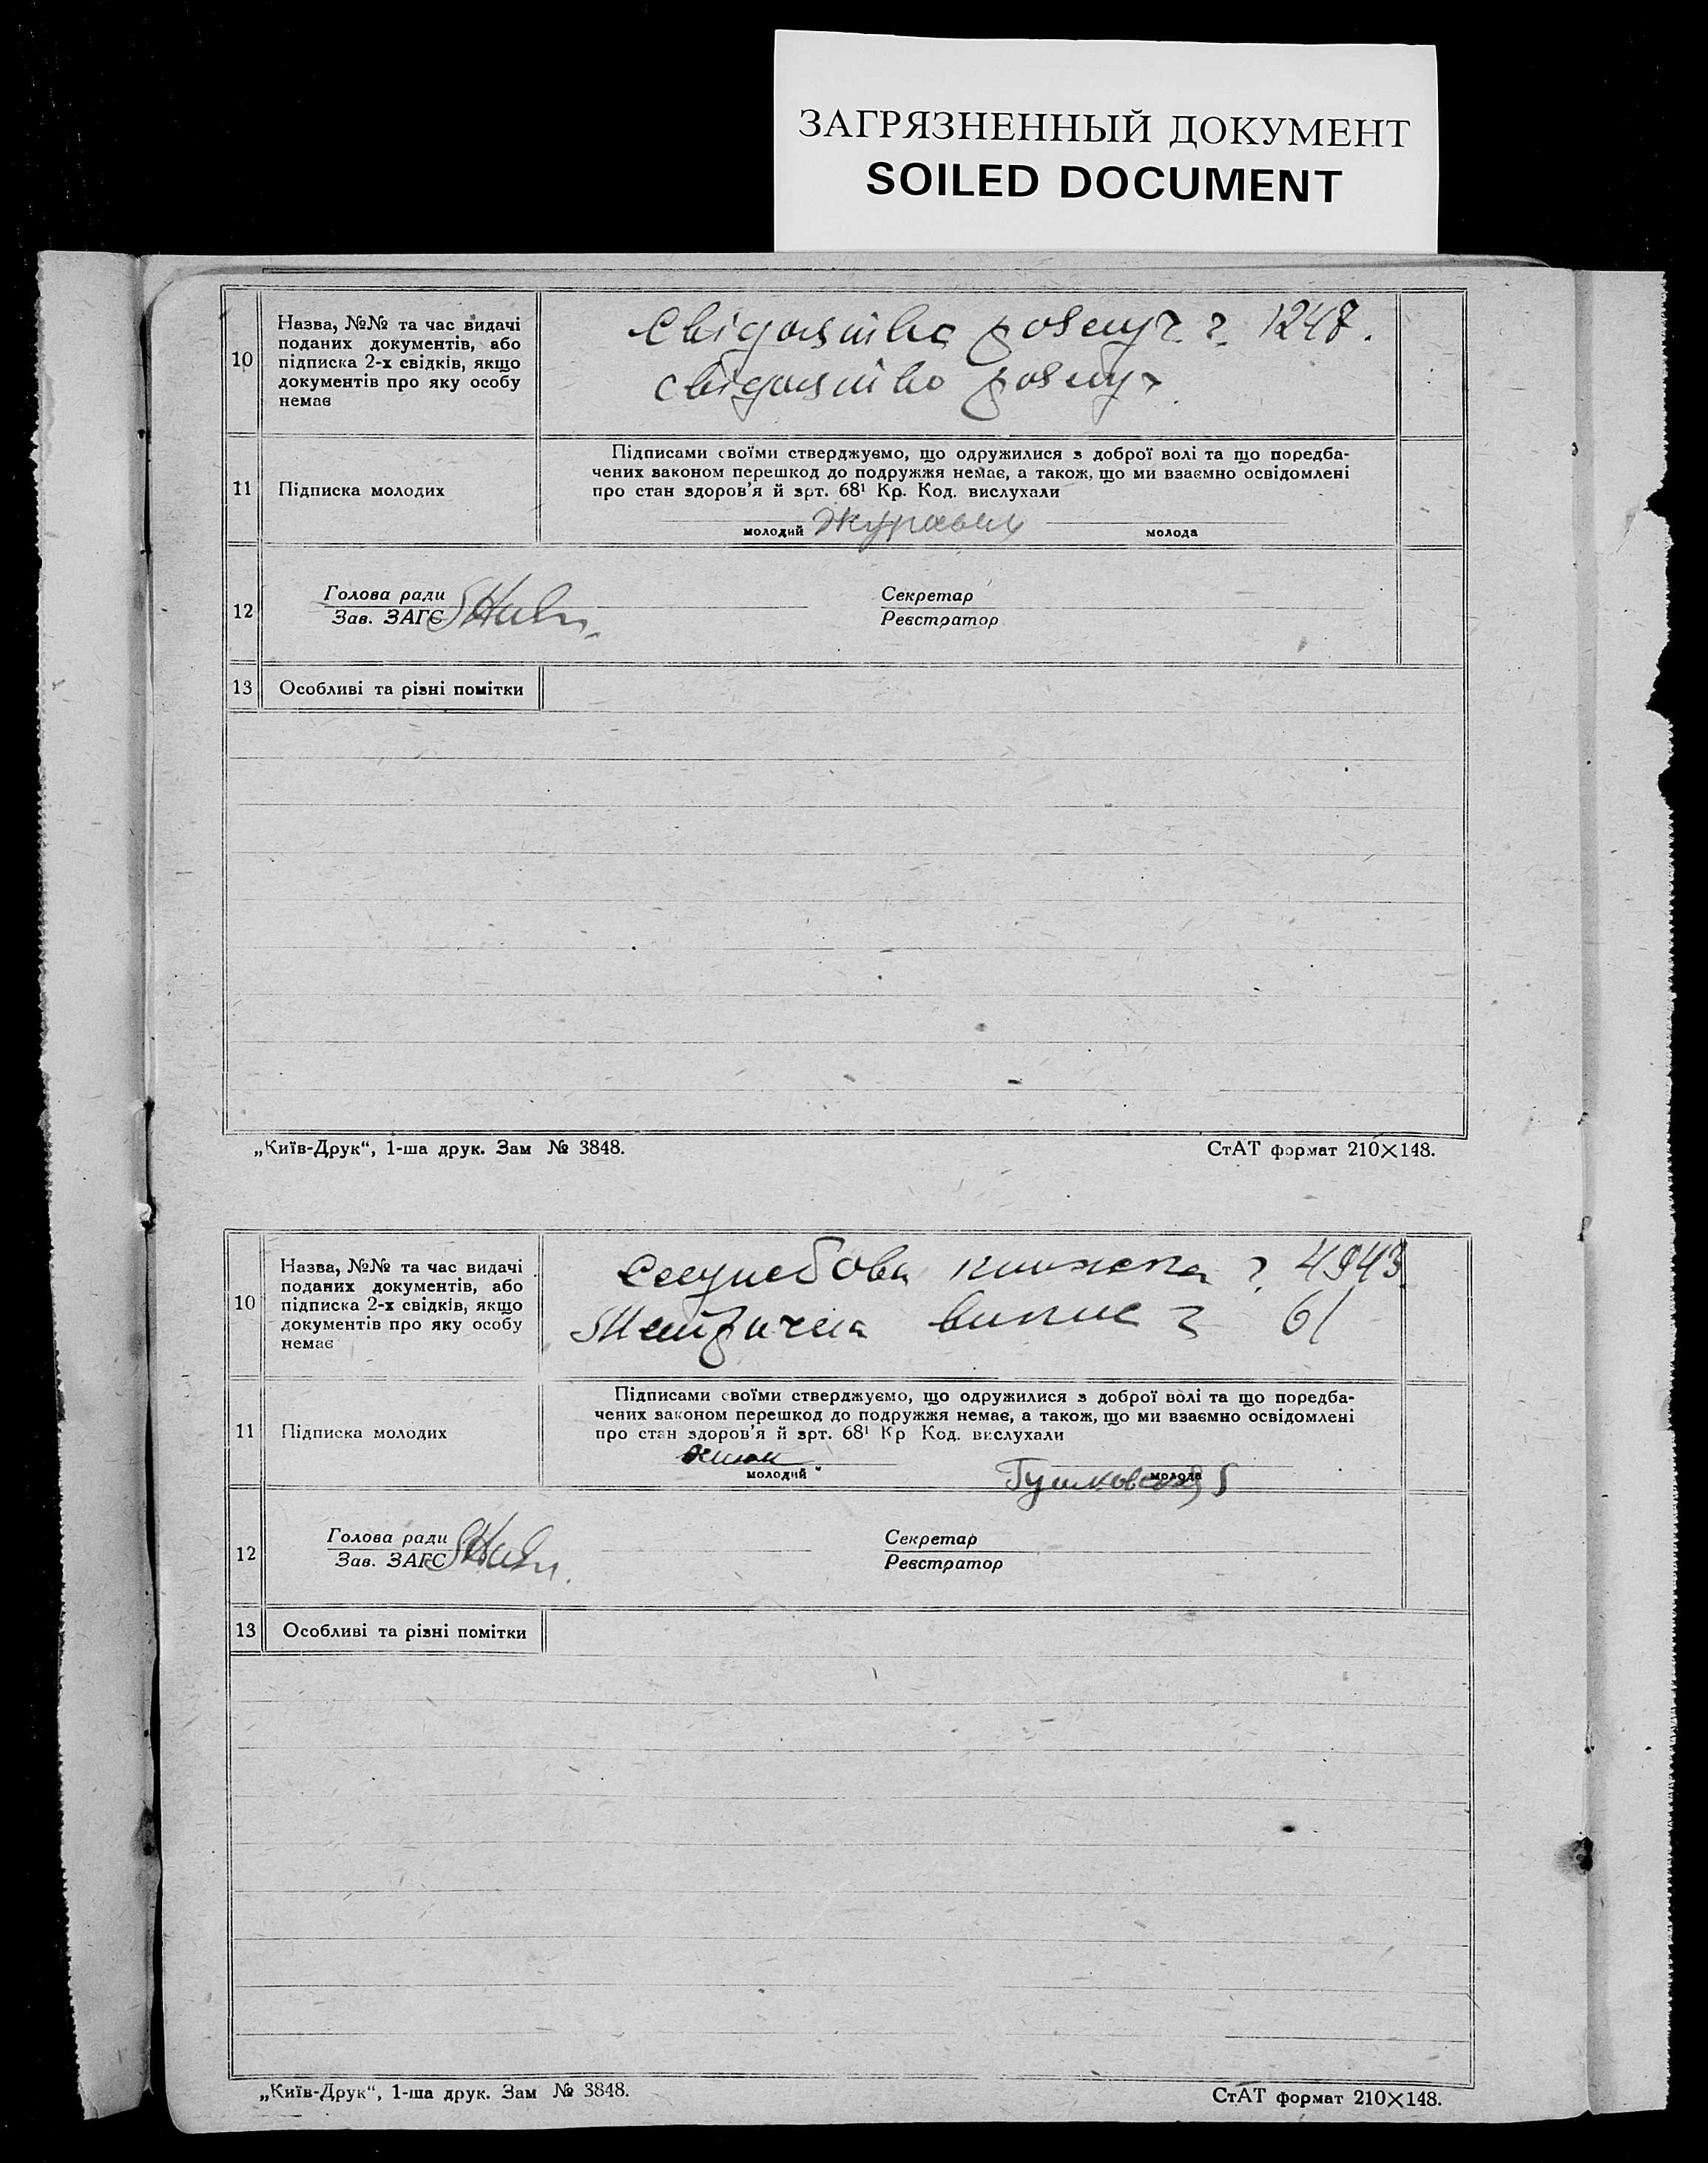 ЗАГРЯЗНЕННЫЙ ДОКУМЕНТ
SOILED DOCUMENT
10
Назва, №№ та час видачі
поданих документів, або
підписка 2-х свідків, якщо
документів про яку особу
немає
1247.
11
Підписка молодих
Підписами своїми стверджуємо, що одружилися з доброї волі та що поредба-
чених законом перешкод до подружжя немає, а також, що ми взаємно освідомлені
про стан здоров'я й арт. 68¹ Кр. Код. вислухали
молодий Журавель
молода
12
Голова ради
Зав. ЗАГС
Секретар
Реєстратор
13
Особливі та різні помітки
„Київ-Друк“, 1-ша друк. Зам № 3848.
СтАТ формат 210×148.
10
Назва, №№ та час видачі
поданих документів, або
підписка 2-х свідків, якщо
документів про яку особу
немає
Службова книжка 4943
Метрична випис 61
11
Підписка молодих
Підписами своїми стверджуємо, що одружилися з доброї волі та що поредба-
чених законом перешкод до подружжя немає, а також, що ми взаємно освідомлені
про стан здоров'я й арт. 68¹ Кр Код. вислухали
молодий
молода
12
Голова ради
Зав. ЗАГС
Секретар
Реєстратор
13
Особливі та різні помітки
„Київ-Друк“, 1-ша друк. Зам № 3848.
СтАТ формат 210×148.